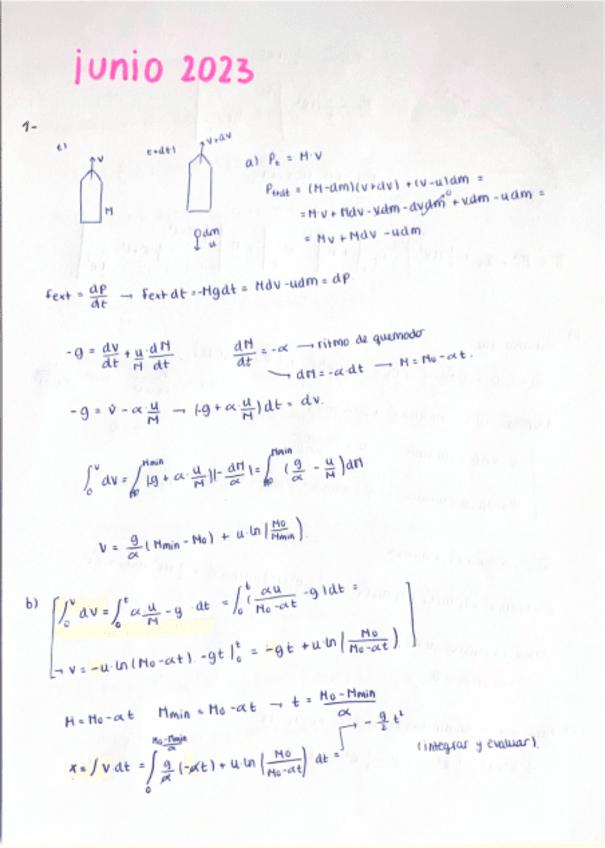 junio 2023
1-
t) v M
t+dt) v+dv dm u
a) Pt = M·v
Pt+dt = (M-dm)(v+dv) + (v-u)dm =
= Mv + Mdv - vdm - dvdm⁰ + vdm - udm =
= Mv + Mdv - udm
fext = dp/dt → fext dt = -Mgdt = Mdv - udm = dp
-g = dv/dt + u/M · dM/dt    dM/dt = -α → ritmo de quemado
→ dM = -α·dt → M = Mo - αt.
-g = v̇ - α u/M → (-g + α·u/M)dt = dv.
∫₀^v dv = ∫_Mo^Mmin (-g + α·u/M)(-dM/α) = ∫_Mo^Mmin (g/α - u/M)dM
v = g/α (Mmin - Mo) + u·ln(Mo/Mmin)
b) [∫₀^v dv = ∫₀^t α u/M - g · dt = ∫₀^t (αu/(Mo-αt) - g)dt =
→ v = -u·ln(Mo-αt) - gt |₀^t = -gt + u·ln(Mo/(Mo-αt))]
M = Mo - αt    Mmin = Mo - αt → t = (Mo - Mmin)/α
→ - g/2 t²
x = ∫v·dt = ∫₀^((Mo-Mmin)/α) g/α (-αt) + u·ln(Mo/(Mo-αt)) dt =    (integrar y evaluar)